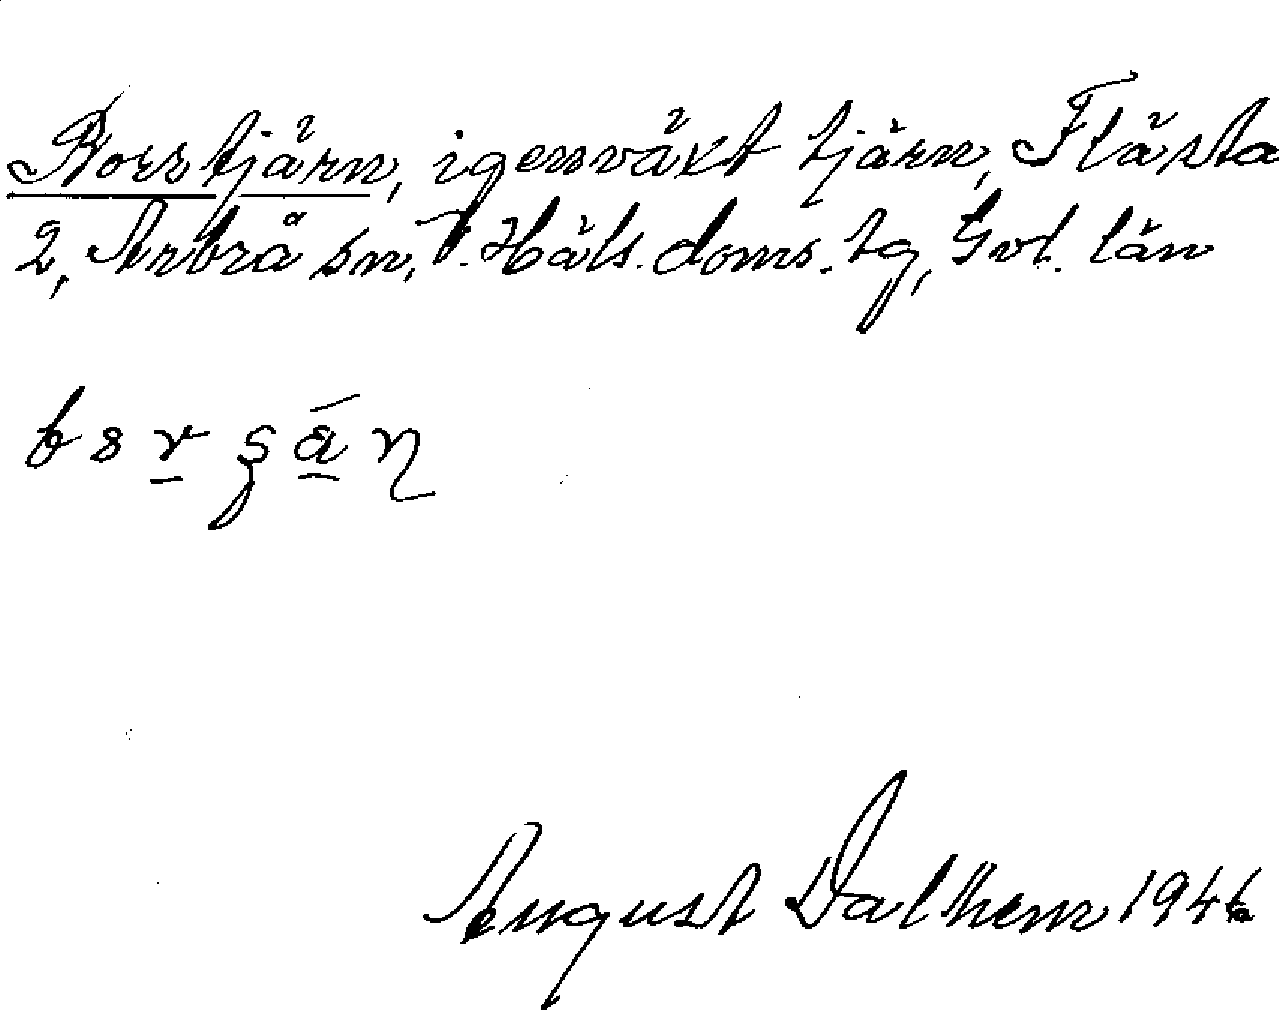 Borstjärn, igenväxt tjärn, Flästa
2, Arbrå sn, V. Häls. doms. tg, Gvl. län
August Dalhem 1946